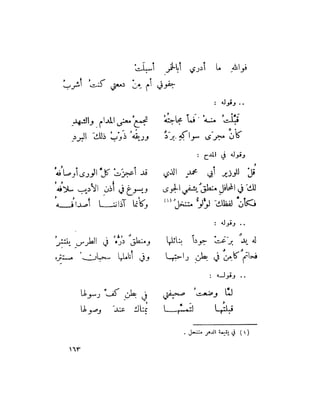 فواللهِ ما أدري أبالخمرِ أسبلَتْ
جفوني أم مِنْ دمعتي كنتُ أشربُ
. . وقوله :
قبَّلْتُ منـه فماً مجاجتُهُ تجمعُ معنى المدامِ والشهدِ
كأنَّ مجرَى سواكِهِ بَرَدٌ وريقُهُ ذَوْبُ ذلكَ البَرَدِ
وقوله في المدح :
قُلْ للوزيرِ أبي محمدٍ الذي قد أعجزتْ كلَّ الورى أوصافُهُ
لكَ في المحافلِ منطقٌ يشفي الجوى ويسوغُ في أُذنِ الأديبِ سلافُهُ
فكأنَّ لفظكَ لؤلؤٌ متنخلٌ (١) وكأنما آذاننـــا أصدافُــهُ
. . وقوله :
له يدٌ برَعَتْ جوداً بنائلِها ومنطقٌ دُرُّهُ في الطرسِ ينتثِرُ
فحاتمٌ كامنٌ في بطنِ راحتِهـا وفي أناملِها سحبانُ مستتِرُ
. . وقولـه :
لمَّا وضعتُ صحيفتي في بطنِ كفِّ رسولها
قبلتُهـا لتمسَّهـــا يُمناكِ عندَ وصولها
(١) في يتيمة الدهر متنحل .
١٦٣